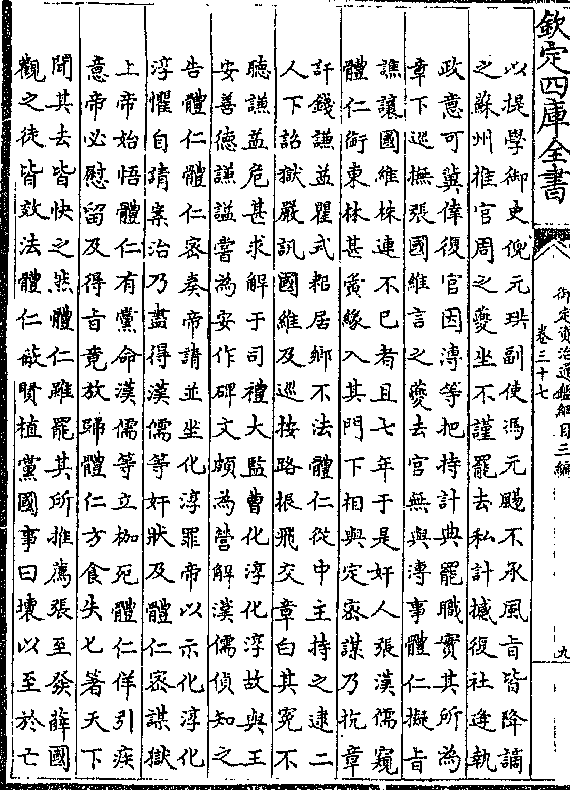 欽定四庫全書
御定資治通鑑綱目三編
卷三十七
九
以提學御史倪元珙副使馮元颺不承風旨皆降謫
之蘇州推官周之夔坐不謹罷去私計撼復社逢執
政意可冀倖復官因溥等把持計典罷職實其所為
章下巡撫張國維言之夔去官無與溥事體仁擬旨
譙讓國維株連不已者且七年于是奸人張漢儒窺
體仁銜東林甚夤緣入其門下相與定密謀乃抗章
訐錢謙益瞿式耜居鄉不法體仁從中主持之逮二
人下詔獄嚴訊國維及巡按路振飛交章白其冤不
聽謙益危甚求解于司禮大監曹化淳化淳故與王
安善德謙謚嘗為安作碑文頗為營解漢儒偵知之
告體仁體仁密奏帝請並坐化淳罪帝以示化淳化
淳懼自請案治乃盡得漢儒等奸狀及體仁密謀獄
上帝始悟體仁有黨命漢儒等立枷死體仁佯引疾
意帝必慰留及得旨竟放歸體仁方食失匕著天下
聞其去皆快之然體仁雖罷其所推薦張至發薛國
觀之徒皆效法體仁蔽賢植黨國事日壞以至於亡